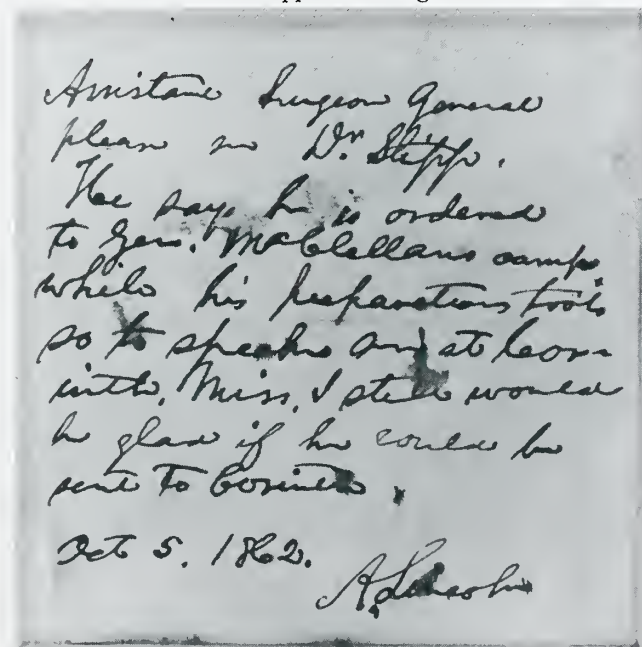 Assistant Surgeon General
please see Dr. Stipp.
He says he is ordered
to Gen. McClellans camp,
while his preparations, tools
so to speak are at Cor-
inth, Miss. I still would
be glad if he could be
sent to Corinth.
Oct 5. 1862.
A. Lincoln